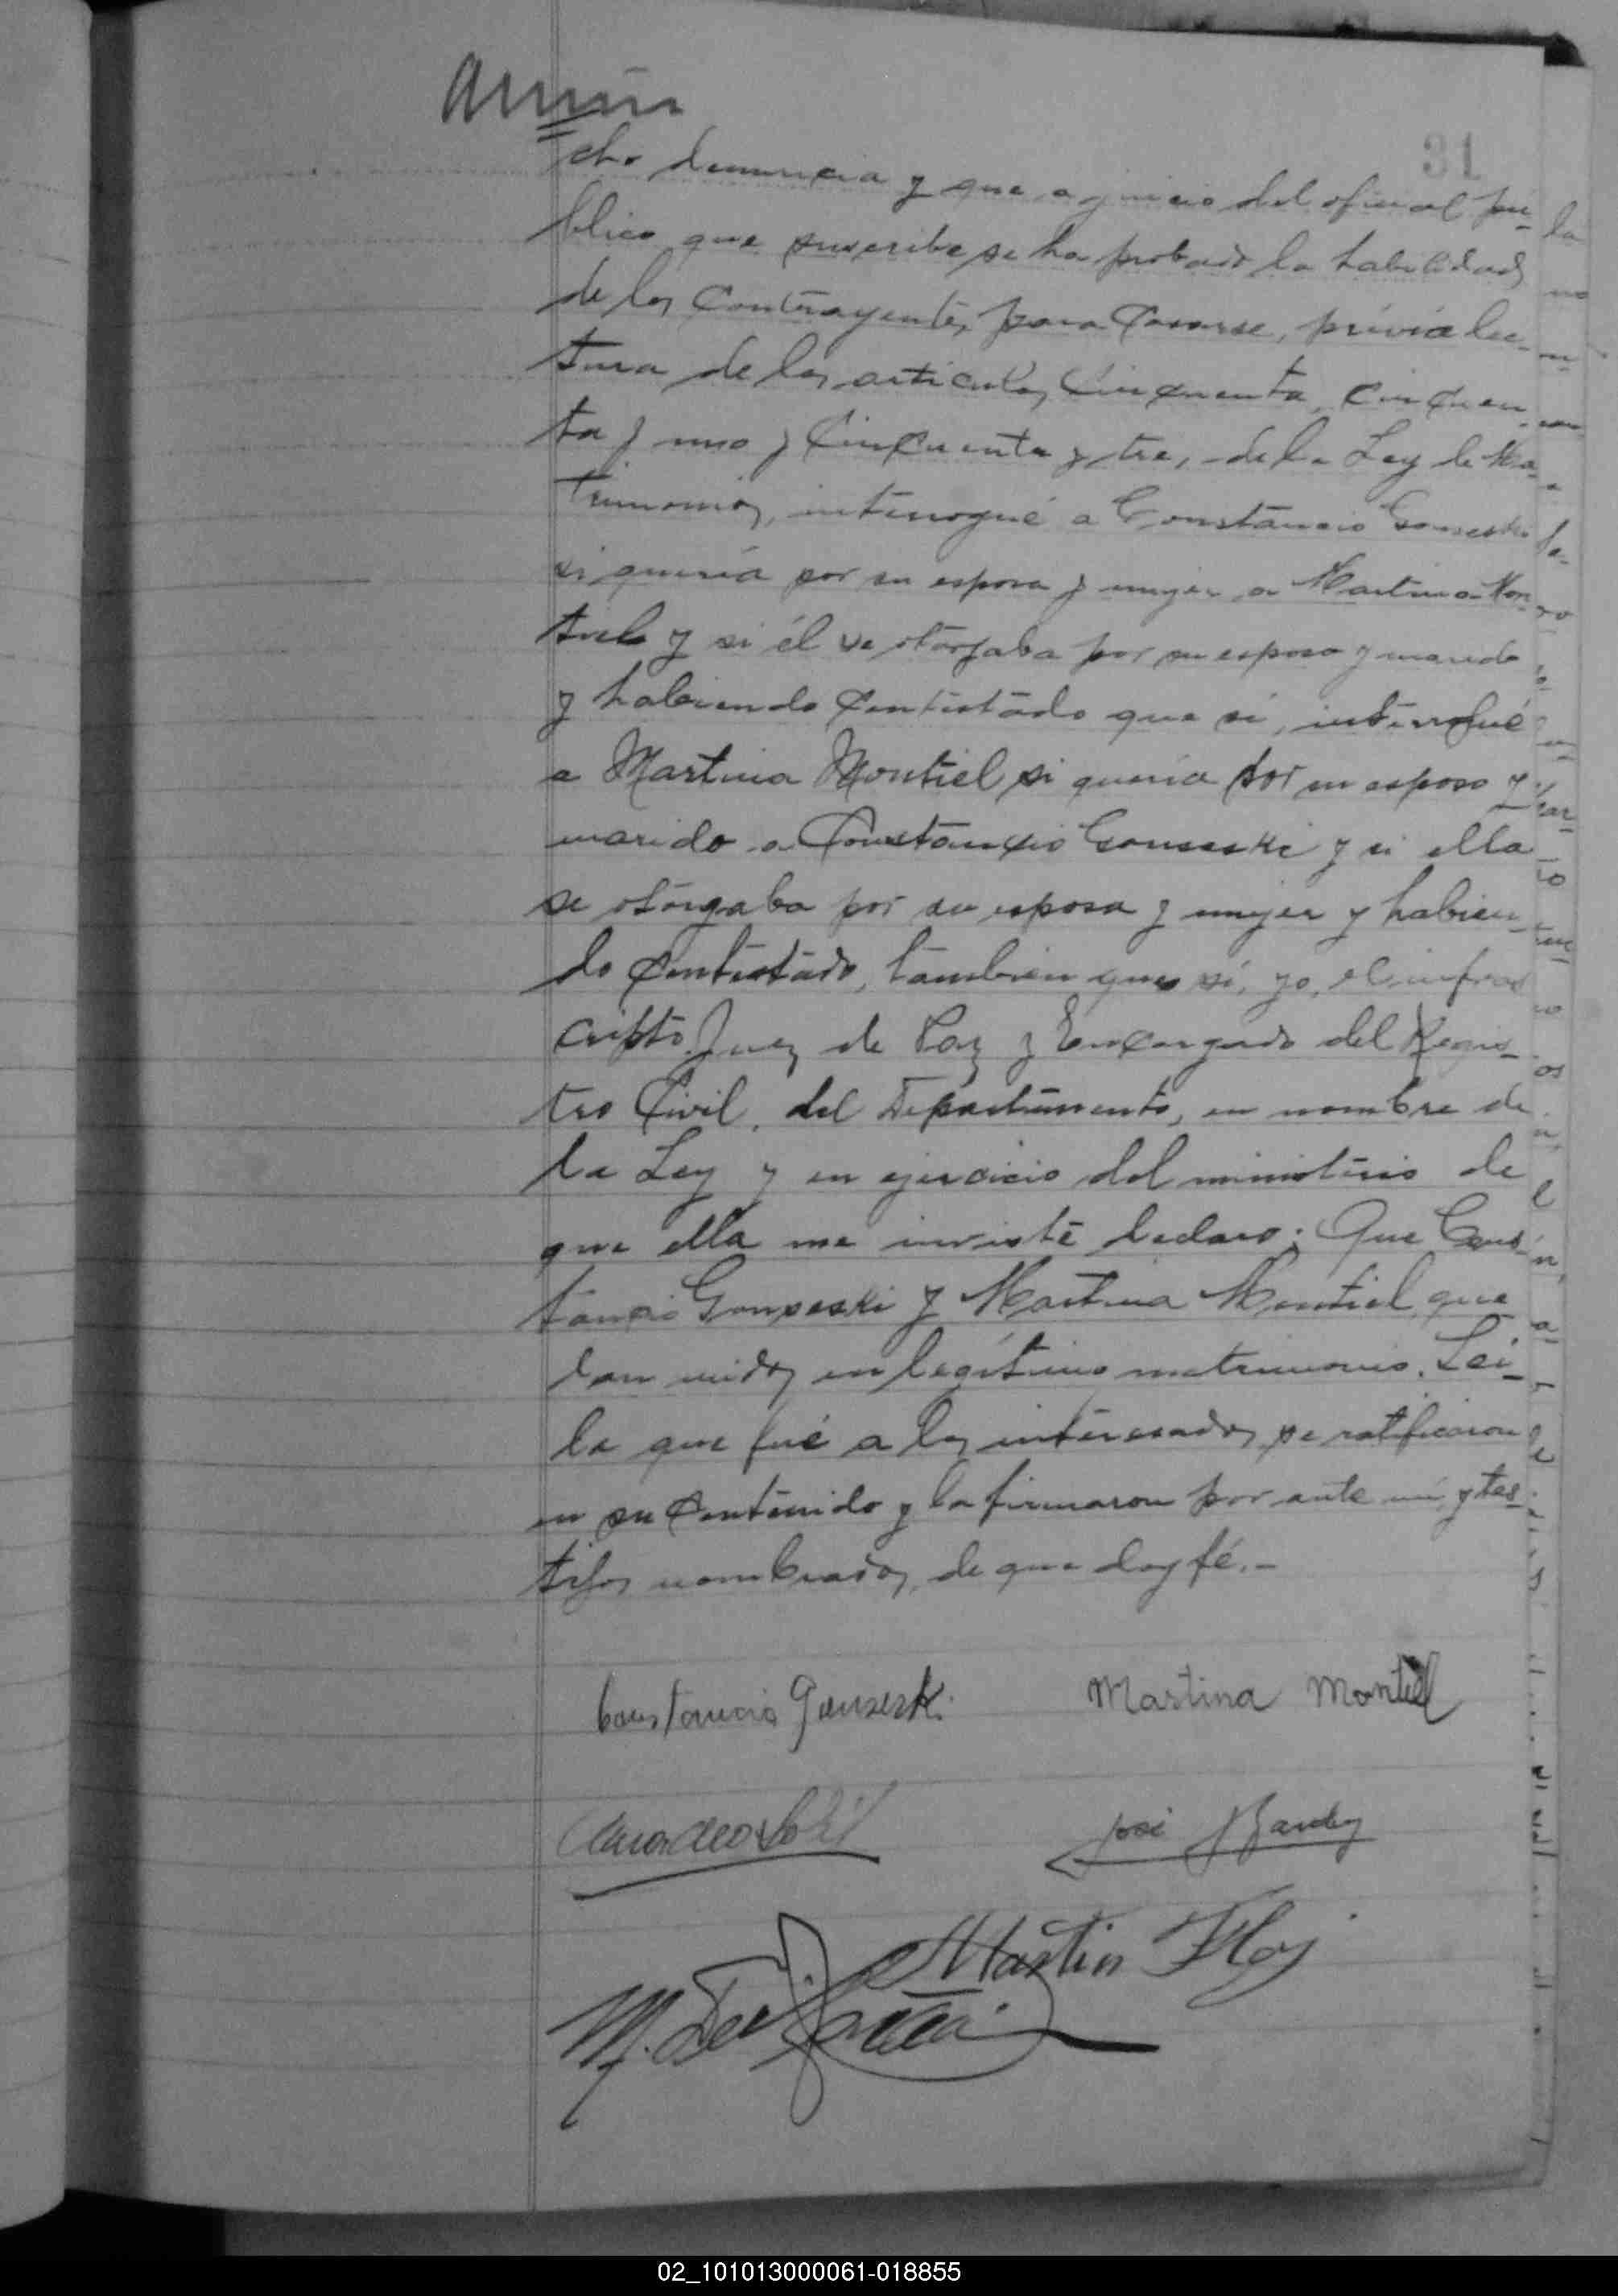 31
cho denuncia y que a juicio del oficial pú-
blico que suscribe se ha probado la habilidad
de los contrayentes para casarse, prévia lec-
tura de los articulos cincuenta, cincuen-
ta y uno y cincuenta y tres, de la Ley de Ma-
trimonios, interrogué a Constancio Gonseski
si quería por su esposa y mujer a Martina Mon-
tiel y si él se otorgaba por su esposo y marido
y habiendo contestado que sí, interrogué
a Martina Montiel si quería por su esposo y
marido a Constancio Gonseski y si ella
se otorgaba por su esposa y mujer y habien-
do contestado, tambien que sí, yo, el infras
cripto Juez de Paz y Encargado del Regis-
tro Civil, del Departamento, en nombre de
la Ley y en ejercicio del ministerio de
que ella me inviste declaro: Que Cons-
tancio Gonseski y Martina Montiel que
dan unidos en legítimo matrimonio. Leí-
da que fué a los interesados, se ratificaron
en su contenido y la firmaron por ante mí y tes-
tigos nombrados, de que doy fé.-
Constancio Gonseski
Martina Montiel
José
Martin
M.
02_101013000061-018855